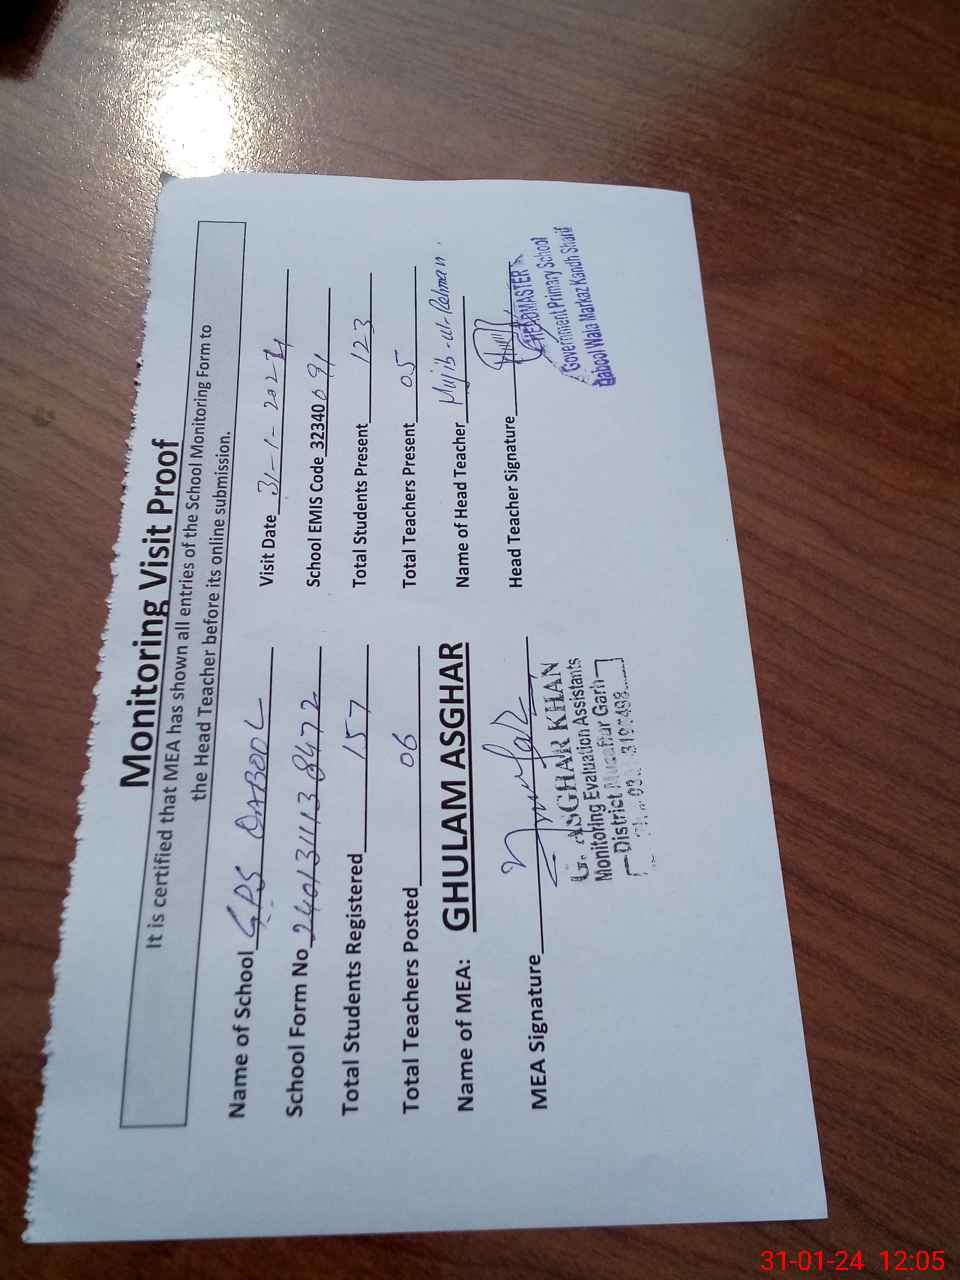 Monitoring Visit Proof
It is certified that MEA has shown all entries of the School Monitoring Form to
the Head Teacher before its online submission.
Name of School GPS QABOOL
Visit Date 31-1-2024
School Form No 2401311138472
School EMIS Code 32340091
Total Students Registered 157
Total Students Present 123
Total Teachers Posted 06
Total Teachers Present 05
Name of MEA: GHULAM ASGHAR
Name of Head Teacher Mujib-ur-Rehman.
MEA Signature
Head Teacher Signature
HEADMASTER
Government Primary School
Qabool Wala Markaz Kandh Sharif
G. ASGHAR KHAN
Monitoring Evaluation Assistants
District Muzaffar Garh
31-01-24 12:05